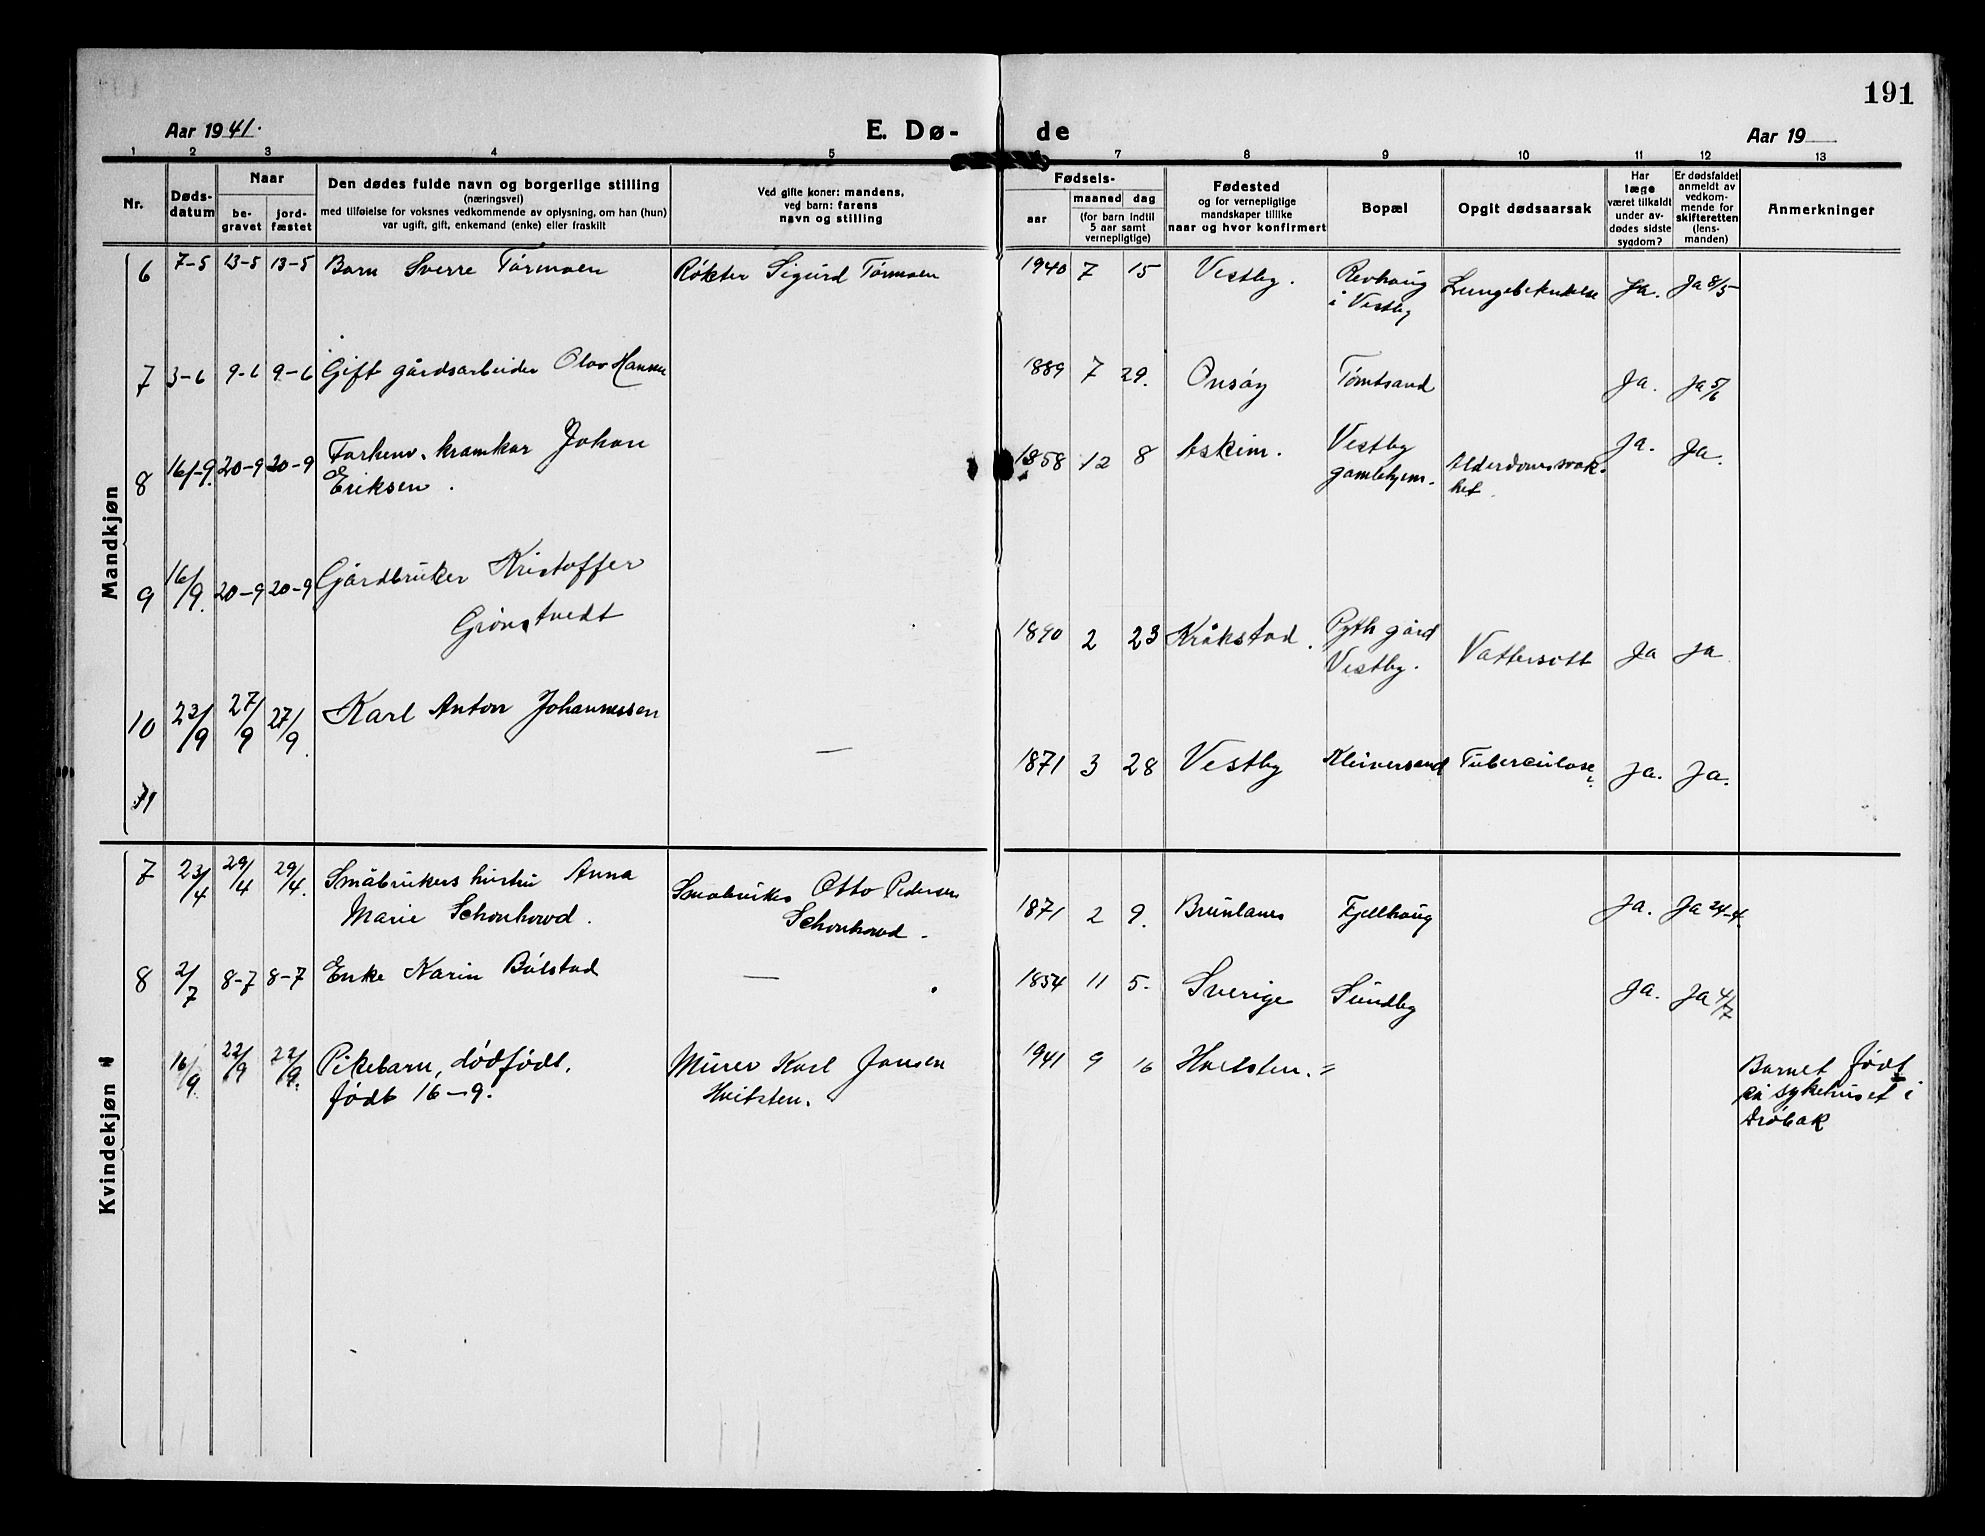 191
Aar 1941.
E. Dø-
de
Aar 19
1 2 3 4 5 7 8 9 10 11 12 13
Nr.
Døds-
datum
Naar
be-
gravet
jord-
fæstet
Den dødes fulde navn og borgerlige stilling
(næringsvei)
med tilføielse for voksnes vedkommende av oplysning, om han (hun)
var ugift, gift, enkemand (enke) eller fraskilt
Ved gifte koner: mandens,
ved barn: farens
navn og stilling
Fødsels-
aar
maaned dag
(for barn indtil
5 aar samt
vernepligtige)
Fødested
og for vernepligtige
mandskaper tillike
naar og hvor konfirmert
Bopæl
Opgit dødsaarsak
Har
læge
været tilkaldt
under av-
dødes sidste
sygdom?
Er dødsfaldet
anmeldt av
vedkom-
mende for
skifteretten
(lens-
manden)
Anmerkninger
Mandkjøn
6 7-5 13-5 13-5 Barn Sverre Tormoen Røkter Sigurd Tormoen 1940 7 15 Vestby. Revhaug Ja. Ja 8/5
i Vestby
7 3-6 9-6 9-6 Gift gårdsarbeider Olav Hansen 1889 7 29. Onsøy Tomtsand Ja. Ja 5/6
8 16/-9. 20-9 20-9 Forhenv. Johan 1858 12 8 Askim. Vestby Alderdomssvak- Ja. Ja.
Eriksen. gamlehjem. het.
9 16/9. 20-9 20-9 Gårdbruker Kristoffer
Grønstvedt 1890 2 23 Kråkstad. Pyth gård Vattersott Ja Ja
Vestby.
10 23/9 27/9 27/9. Karl Anton Johannessen — 1871 3 28 Vestby Kleiversand Tuberculose Ja. Ja.
11
Kvindekjøn
7 23/4 29/4 29/4. Småbrukers hustru Anna Småbruker Otto Pedersen 1871 2 9. Brunlanes Fjellhaug Ja. Ja 24-4.
Marie Schonhowd. Schonhowd.
8 2/7 8-7 8-7 Enke Karin Bølstad — 1854 11 5. Sverige Sundby Ja. Ja 4/7
16/9. 22/9 22/9. Pikebarn, dødfødt. Murer Karl Jansen 1941 9 16 Hvitsten. " Barnet født
født 16-9. Hvitsten. på sykehuset i
Drøbak